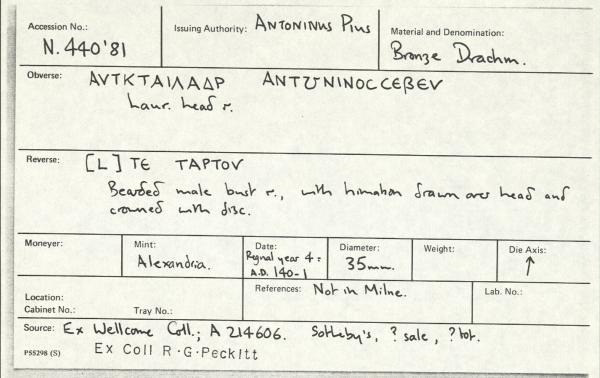 Accession No.: N.440'81
Issuing Authority: Antoninus Pius
Material and Denomination: Bronze Drachm.
Obverse: ΑVΤΚΤΑΙΛΑΔΡ ΑΝΤWΝΙΝΟCCEBEV
Laur. head r.
Reverse: [L] TE TAPTOV
Bearded male bust r., with himation drawn over head and
crowned with disc.
Moneyer:
Mint: Alexandria.
Date: Regnal year 4 =
A.D. 140-1
Diameter: 35mm.
Weight:
Die Axis: ↑
Location:
Cabinet No.: Tray No.:
References: Not in Milne.
Lab. No.:
Source: Ex Wellcome Coll.; A 214606. Sotheby's, ? sale, ? lot.
PS5298 (S) Ex Coll R·G·Peckitt